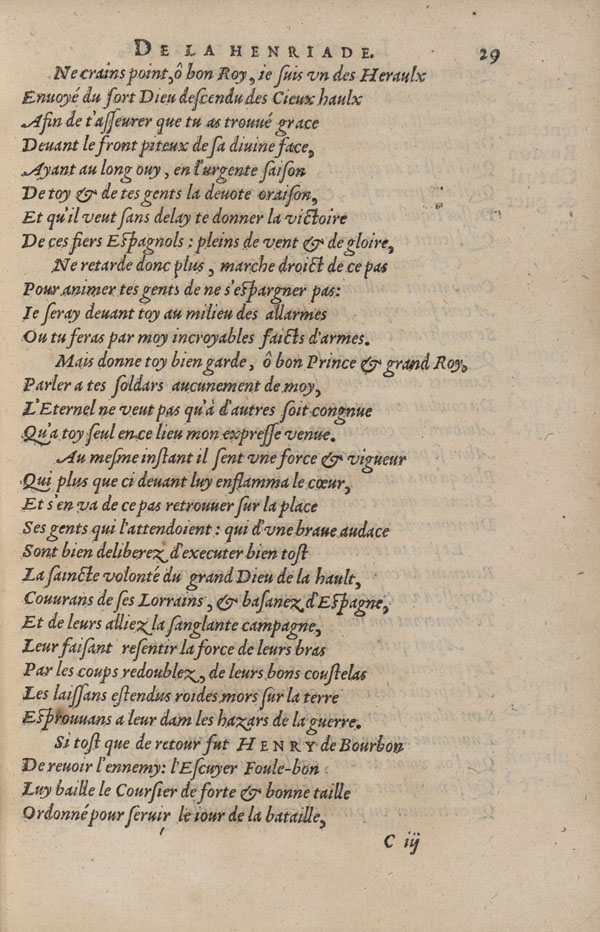 DE LA HENRIADE. 29
Ne crains point, ô bon Roy, ie suis vn des Heraulx
Enuoyé du fort Dieu descendu des Cieux haulx
Afin de t'asseurer que tu as trouué grace
Deuant le front piteux de sa diuine face,
Ayant au long ouy, en l'urgente saison
De toy & de tes gents la deuote oraison,
Et qu'il veut sans delay te donner la victoire
De ces fiers Espagnols : pleins de vent & de gloire,
Ne retarde donc plus, marche droict de ce pas
Pour animer tes gents de ne s'espargner pas:
Ie seray deuant toy au milieu des allarmes
Ou tu feras par moy incroyables faicts d'armes.
Mais donne toy bien garde, ô bon Prince & grand Roy,
Parler a tes soldars aucunement de moy,
L'Eternel ne veut pas qu'à d'autres soit congnue
Qu'a toy seul en ce lieu mon expresse venue.
Au mesme instant il sent vne force & vigueur
Qui plus que ci deuant luy enflamma le cœur,
Et s'en va de ce pas retrouuer sur la place
Ses gents qui l'attendoient : qui d'vne braue audace
Sont bien deliberez d'executer bien tost
La saincte volonté du grand Dieu de la hault,
Couurans de ses Lorrains, & basanez d'Espagne,
Et de leurs alliez la sanglante campagne,
Leur faisant resentir la force de leurs bras
Par les coups redoublez, de leurs bons coustelas
Les laissans estendus roides mors sur la terre
Esprouuans a leur dam les hazars de la guerre.
Si tost que de retour fut HENRY de Bourbon
De reuoir l'ennemy: l'Escuyer Foule-bon
Luy baille le Coursier de forte & bonne taille
Ordonné pour seruir le iour de la bataille,
C iij